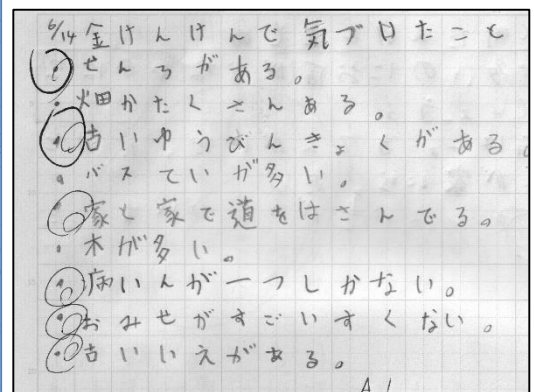 6/14 金けんけんで気づいたこと
・せんろがある。
・畑がたくさんある。
・古いゆうびんきょくがある。
・バスていが多い。
・家と家で道をはさんでる。
・木が多い。
・病いんが一つしかない。
・おみせがすごいすくない。
・古いいえがある。